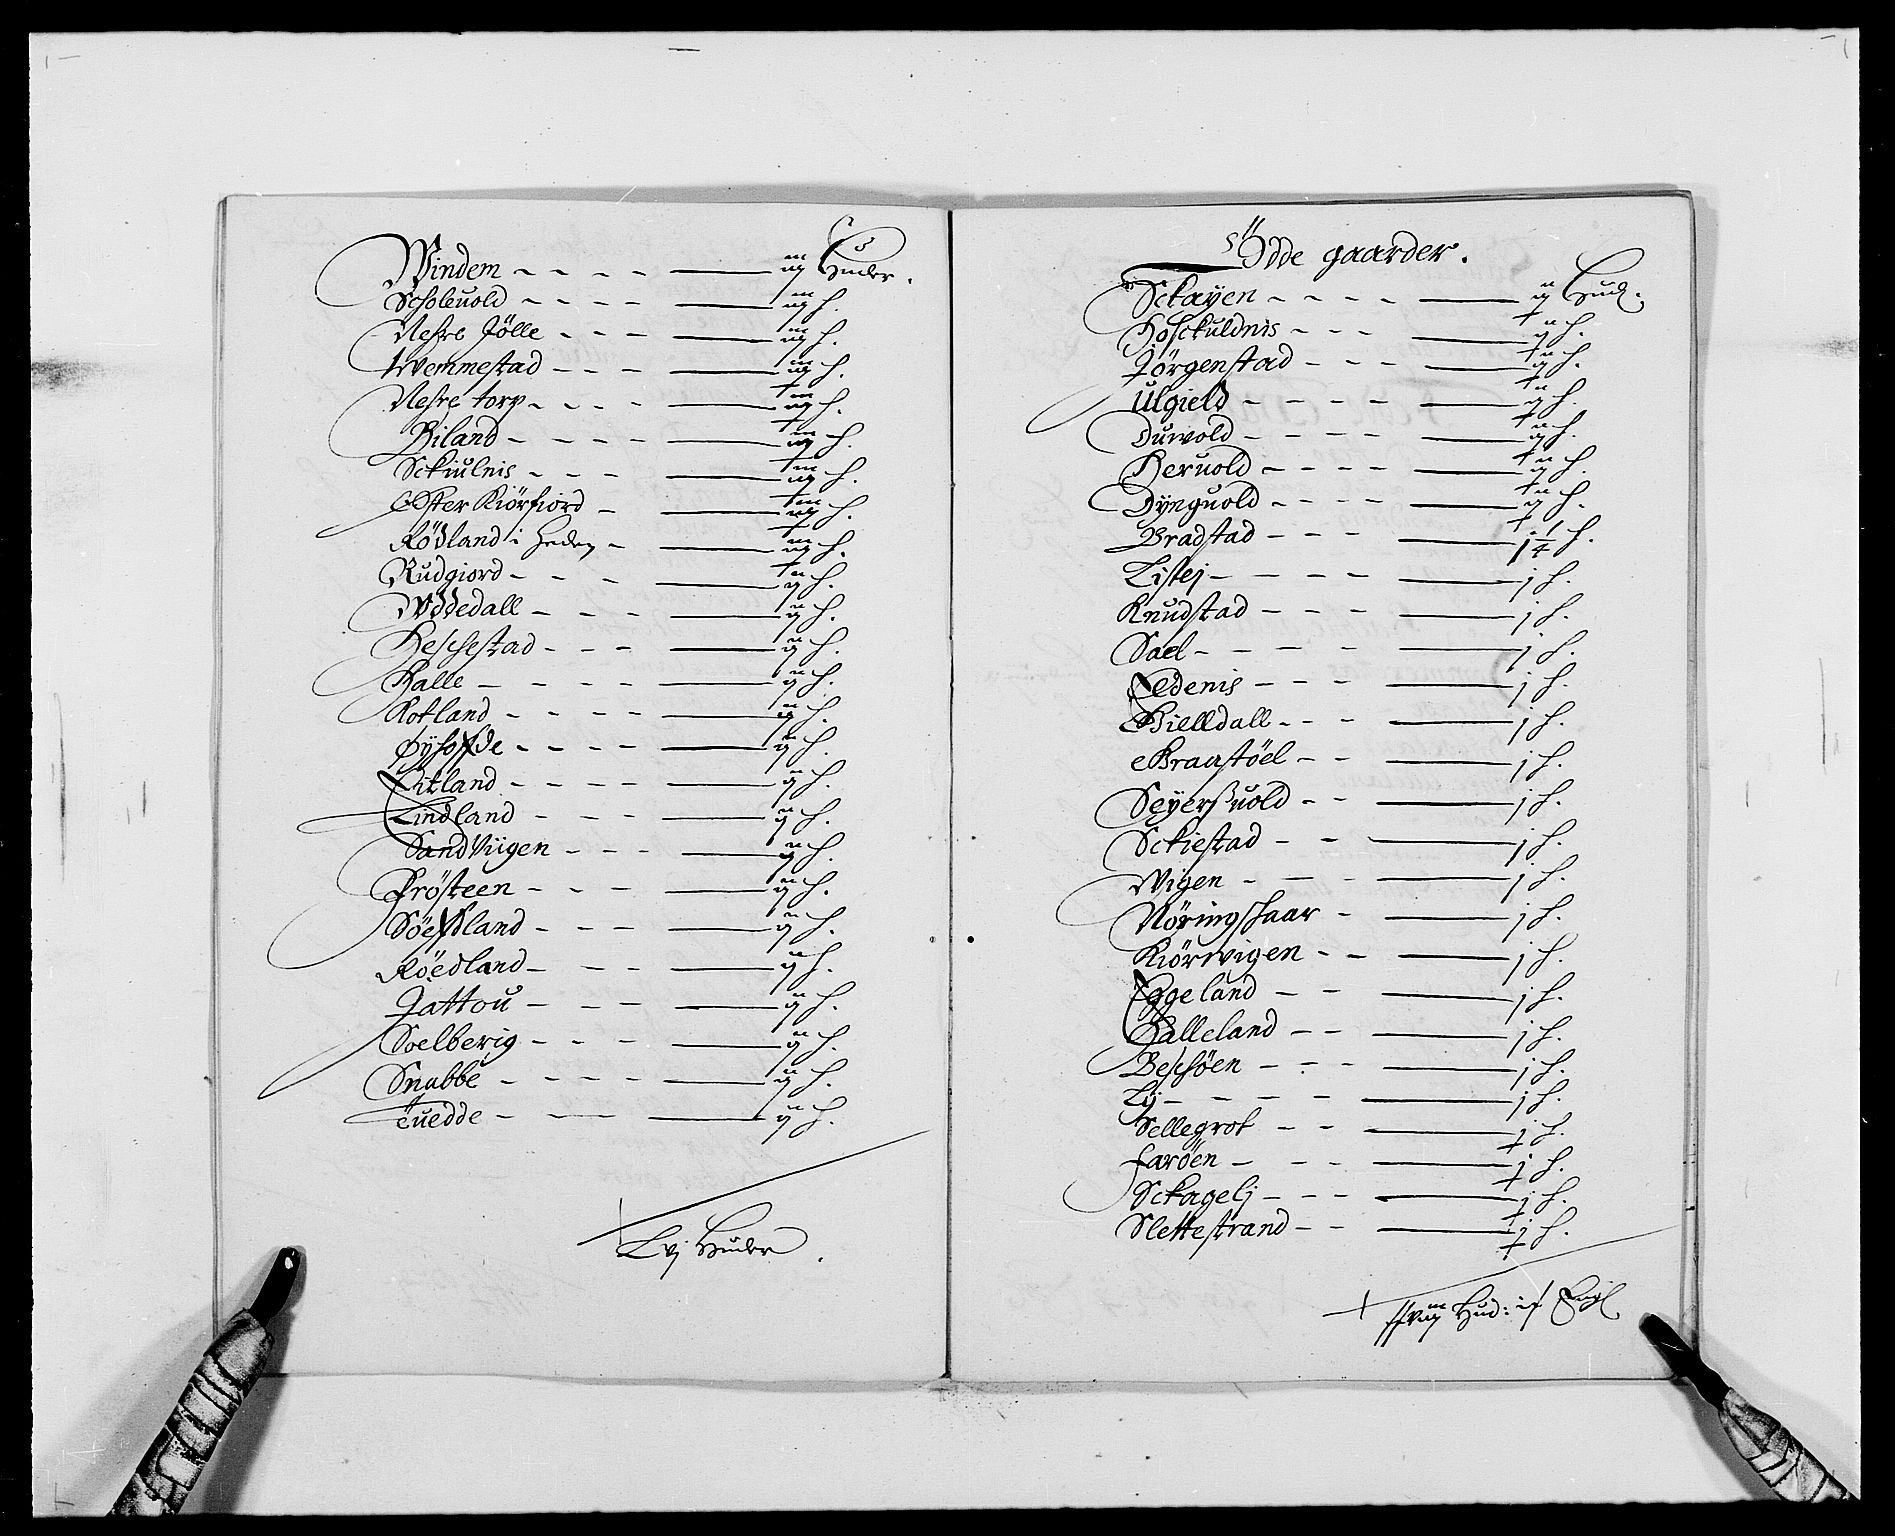 Windem - - - - iij Huder.
Scholeuold - - - - iij h.
Nesre Jölle - - - iij h.
Wemmestad - - - iij h.
Nesre torp - - - - iij h.
Biland - - - - - iij h.
Sckiulnis - - - iij h.
Øster Kiörfiord - iij h.
Rödland i Heden - iij h.
Rudgiord - - - ij h.
Wddedall - - - ij h.
Heschestad - - - ij h.
Halle - - - - - ij h.
Rotland - - - - ij h.
Øyhofde - - - - ij h.
Litland - - - - ij h.
Lindland - - - ij h.
Sandviigen - - - ij h.
Prösteen - - - ij h.
Söeland - - - ij h.
Röedland - - - ij h.
Jattou - - - ij h.
Soelberig - - - ij h.
Snabbe - - - - ij h.
Tuedde - - - ij h.
Lvj Huder.
Ödde gaarder.
Sckayen - - - - ij Hud:
Hosckuldnis - - - ij h.
Jörgenstad - - - ij h.
Ulgield - - - - ij h.
Duwold - - - - ij h.
Heruold - - - - ij h.
Dynguold - - - - ij h.
Bradstad - - - j 1/4 h.
Listej - - - - j h.
Knudstad - - - j h.
Sael - - - - j h.
Edenis - - - j h.
Hielldall - - - j h.
Braastöel - - j h.
Seyersuold - - j h.
Sckiestad - - j h.
Wigen - - - j h.
Nöringshaar - j h.
Kiörwigen - - j h.
Eggeland - - j h.
Halleland - - j h.
Beschöen - - - j h.
Lij - - - - j h.
Sellegrot - - j h.
Faröen - - - j h.
Sckagelj - - - j h.
Slettestrand - - j h.
Hud: